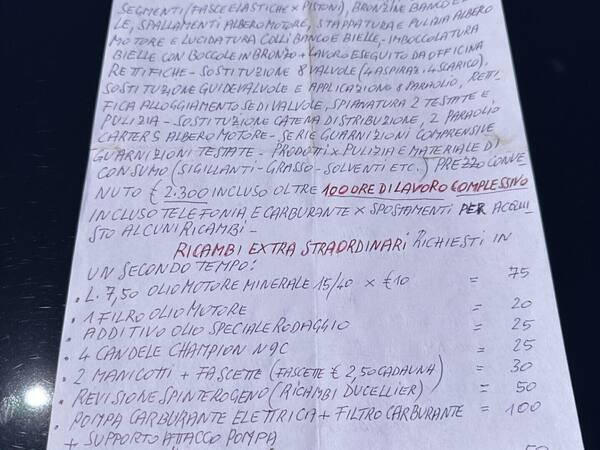 SEGMENTI (FASCE ELASTICHE × PISTONI), BRONZINE BANCO E
LE, SPALLAMENTI ALBERO MOTORE, STAPPATURA E PULIZIA ALBERO
MOTORE E LUCIDATURA COLLI BANCO E BIELLE, IMBOCCOLATURA
BIELLE CON BOCCOLE IN BRONZO + LAVORO ESEGUITO DA OFFICINA
RETTIFICHE - SOSTITUZIONE 8 VALVOLE (4 ASPIRAZ. 4 SCARICO).
SOSTITUZIONE GUIDEVALVOLE E APPLICAZIONE 8 PARAOLIO, RETTI-
FICA ALLOGGIAMENTO SEDI VALVOLE, SPIANATURA 2 TESTATE E
PULIZIA - SOSTITUZIONE CATENA DISTRIBUZIONE, 2 PARAOLIO
CARTERS ALBERO MOTORE - SERIE GUARNIZIONI COMPRENSIVE
GUARNIZIONI TESTATE - PRODOTTI × PULIZIA E MATERIALE DI
CONSUMO (SIGILLANTI - GRASSO - SOLVENTI ETC.) PREZZO CONVE
NUTO € 2.300 INCLUSO OLTRE 100 ORE DI LAVORO COMPLESSIVO
INCLUSO TELEFONIA E CARBURANTE × SPOSTAMENTI PER ACQUI
STO ALCUNI RICAMBI -
RICAMBI EXTRA STRAORDINARI RICHIESTI IN
UN SECONDO TEMPO:
• L. 7,50 OLIO MOTORE MINERALE 15/40 × €10 = 75
• 1 FILRO OLIO MOTORE = 20
• ADDITIVO OLIO SPECIALE RODAGGIO = 25
• 4 CANDELE CHAMPION N9C = 25
• 2 MANICOTTI + FASCETTE (FASCETE € 2,50 CADAUNA) = 30
• REVISIONE SPINTEROGENO (RICAMBI DUCELLIER) = 50
• POMPA CARBURANTE ELETTRICA + FILTRO CARBURANTE = 100
+ SUPPORTO ATTACCO POMPA